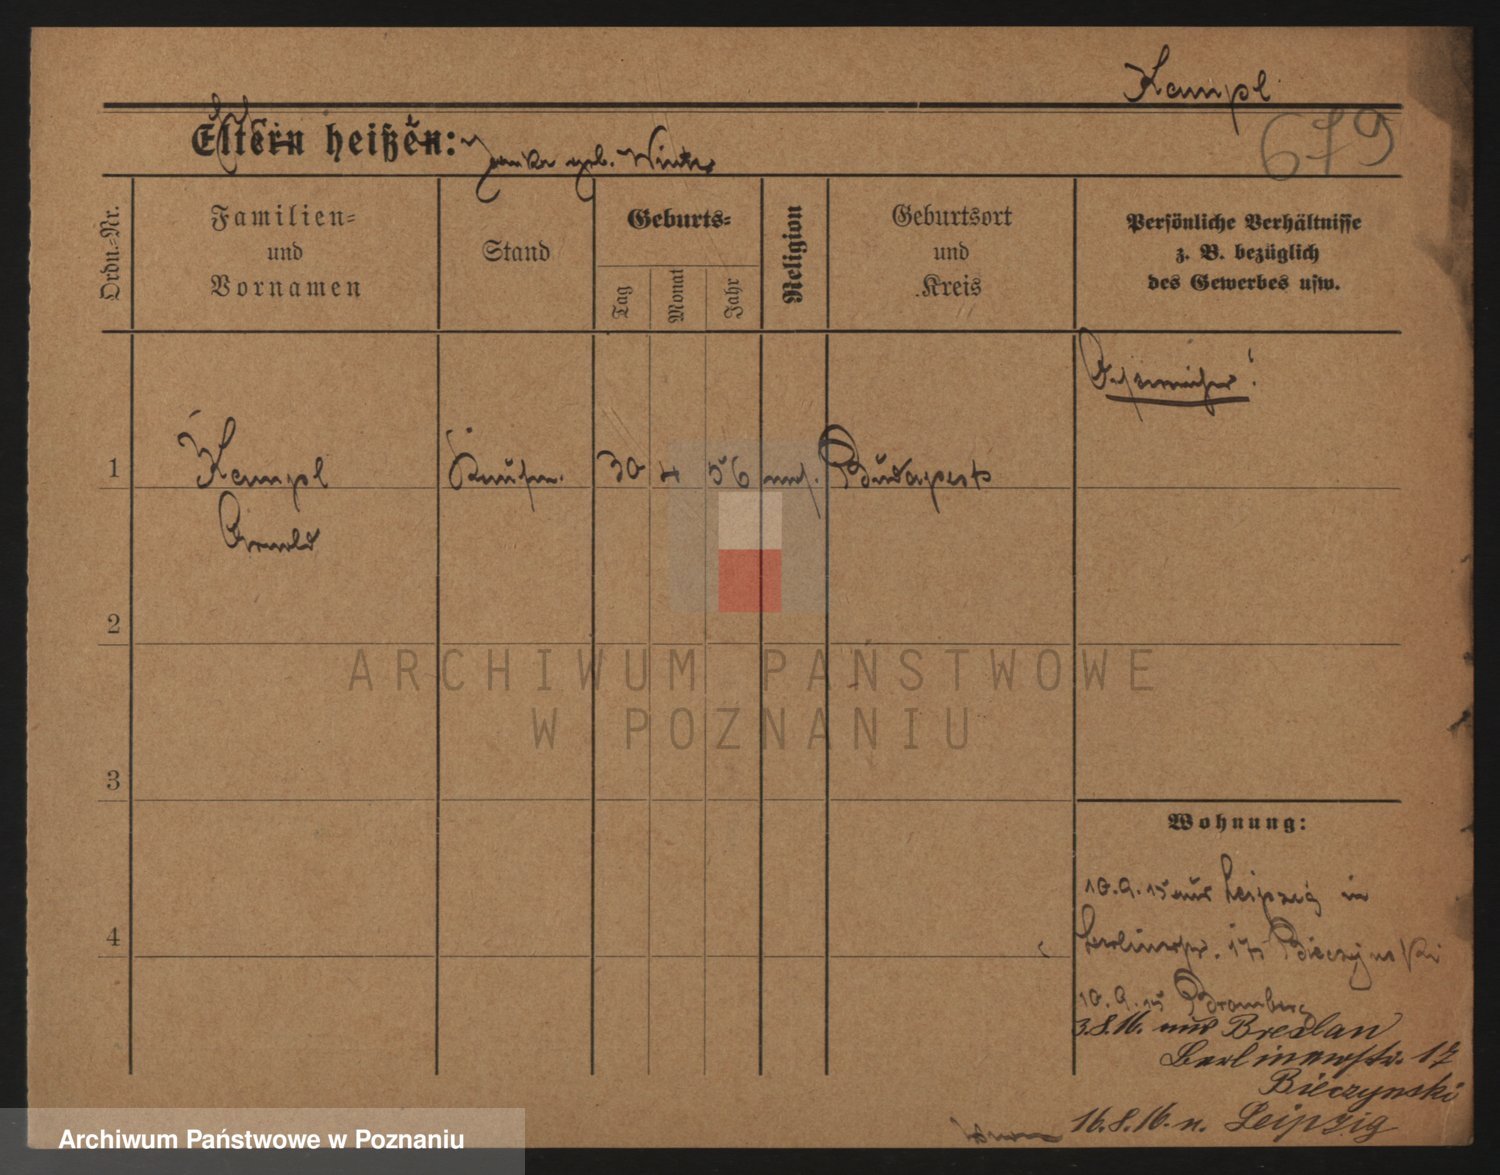 Kempl
679
Eltern heißen:
geb. Winter
Ordn.=Nr.
Familien=
und
Vornamen
Stand
Geburts=
Tag
Monat
Jahr
Religion
Geburtsort
und
Kreis
Persönliche Verhältnisse
z. B. bezüglich
des Gewerbes usw.
Österreicher!
1
Kempl
Kaufm.
30
4
56
mos.
Budapest
Arnold
2
ARCHIWUM PAŃSTWOWE
W POZNANIU
3
Wohnung:
10.9.15 aus Leipzig in
4
Berlinerstr. 17 Bieczynski
10.9.15 Bromberg
3.8.16. aus Breslau
Berlinerstr. 17
Bieczynski
16.8.16. n. Leipzig
Archiwum Państwowe w Poznaniu